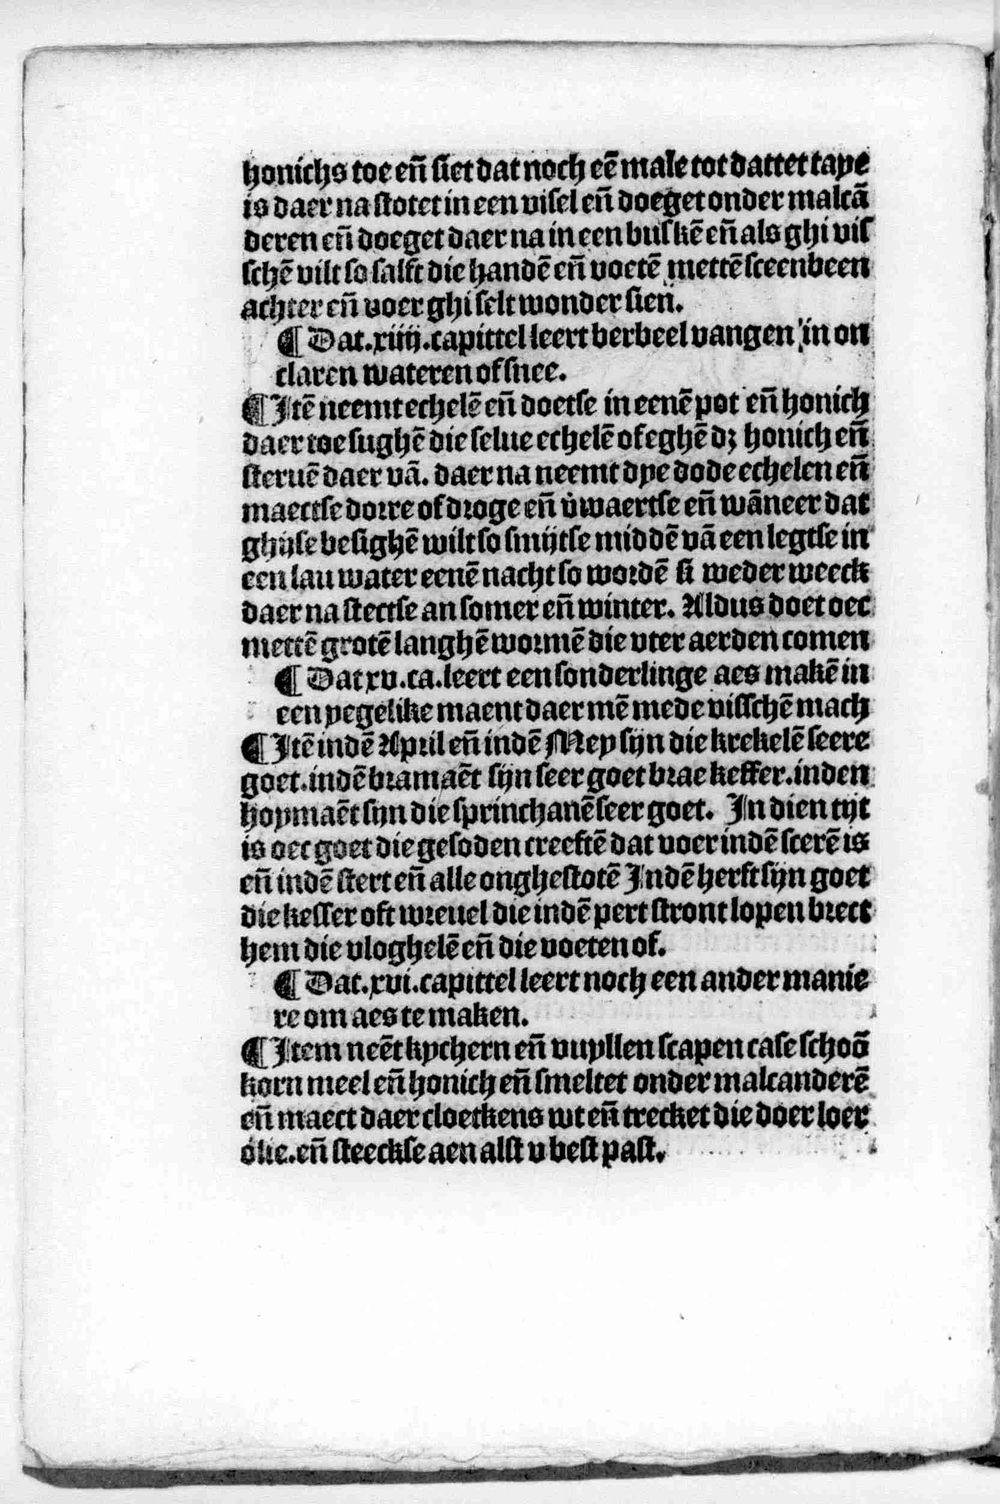 honichs toe eñ siet dat noch eẽ male tot dattet taye
is daer na stotet in een visel eñ doeget onder malcã
deren eñ doeget daer na in een buskẽ eñ als ghi vis
schẽ vilt so salft die handẽ eñ voetẽ mettẽ sceenbeen
achter eñ voer ghi selt wonder sien.
¶ Dat .xiiij. capittel leert berbeel vangen in on
claren wateren of snee.
¶ Itẽ neemt echelẽ eñ doetse in eenẽ pot eñ honich
daer toe sughẽ die selue echelẽ of eghẽ dꝫ honich eñ
steruẽ daer vã. daer na neemt dye dode echelen eñ
maectse dorre of droge eñ v̉waertse eñ wãneer dat
ghijse besighẽ wilt so smijtse middẽ vã een legtse in
een lau water eenẽ nacht so wordẽ si weder weeck
daer na stectse an somer eñ winter. Aldus doet oec
mettẽ grotẽ langhẽ wormẽ die vter aerden comen
¶ Dat xv. ca. leert een sonderlinge aes makẽ in
een yegelike maent daer mẽ mede visschẽ mach
¶ Itẽ indẽ April eñ indẽ Mey sijn die krekelẽ seere
goet. indẽ bramaẽt sijn seer goet brae keffer. inden
hoymaẽt sijn die sprinchanẽ seer goet. In dien tijt
is oec goet die gesoden creeftẽ dat voer indẽ scerẽ is
eñ indẽ stert eñ alle onghestotẽ Indẽ herft sijn goet
die keffer oft wreuel die indẽ pert stront lopen brect
hem die vloghelẽ eñ die voeten of.
¶ Dat .xvi. capittel leert noch een ander manie
re om aes te maken.
¶ Item neẽt kychern eñ vuyllen scapen case schoõ
korn meel eñ honich eñ smeltet onder malcanderẽ
eñ maect daer cloetkens wt eñ trecket die doer loer
olie. eñ steeckse aen alst v best past.